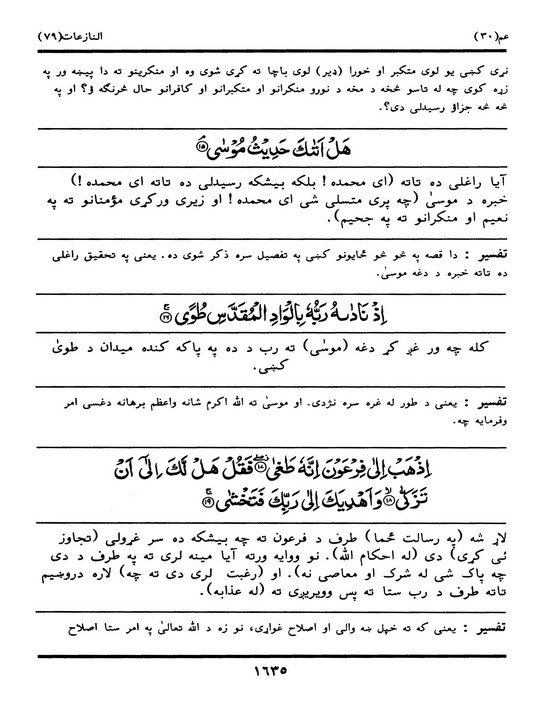 عم(۳۰) النازعات(۷۹)
نړی کښی یو لوی متکبر او خورا (ډیر) لوی باچا ته کړی شوی وه او منکرینو ته دا پیښه ور په
زړه کوی چه له تاسو څخه د مخه د نورو منکرانو او متکبرانو او کافرانو حال څرنګه ؤ؟ او په
څه څه جزاؤ رسیدلی دی؟.
هَلْ اَتٰىكَ حَدِيْثُ مُوْسٰى ۘ ۱۵
آیا راغلی ده تاته (ای محمده! بلکه بیشکه رسیدلی ده تاته ای محمده!)
خبره د موسیٰ (چه پری متسلی شی ای محمده! او زیری ورکړی مؤمنانو ته په
نعیم او منکرانو ته په جحیم).
تفسیر : دا قصه په څو څو ځایونو کښی په تفصیل سره ذکر شوی ده. یعنی په تحقیق راغلی
ده تاته خبره د دغه موسیٰ.
اِذْ نَادٰىهُ رَبُّهٗ بِالْوَادِ الْمُقَدَّسِ طُوًى ۚ ۱۶
کله چه ور غږ کړ دغه (موسیٰ) ته رب د ده په پاکه کنده میدان د طویٰ
کښی.
تفسیر : یعنی د طور له غره سره نژدی. او موسیٰ ته الله اکرم شانه واعظم برهانه دغسی امر
وفرمایه چه.
اِذْهَبْ اِلٰى فِرْعَوْنَ اِنَّهٗ طَغٰى ۱۷ فَقُلْ هَلْ لَّكَ اِلٰٓى اَنْ
تَزَكّٰى ۙ ۱۸ وَاَهْدِيَكَ اِلٰى رَبِّكَ فَتَخْشٰى ۚ ۱۹
لاړ شه (په رسالت ځما) طرف د فرعون ته چه بیشکه ده سر غړولی (تجاوز
ئی کړی) دی (له احکام الله). نو ووایه ورته آیا مینه لری ته په طرف د دی
چه پاک شی له شرک او معاصی نه). او (رغبت لری دی ته چه) لاره دروښیم
تاته طرف د رب ستا ته پس وویریږی ته (له عذابه).
تفسیر : یعنی که ته خپل ښه والی او اصلاح غواړی، نو زه د الله تعالیٰ په امر ستا اصلاح
۱٦۳۵